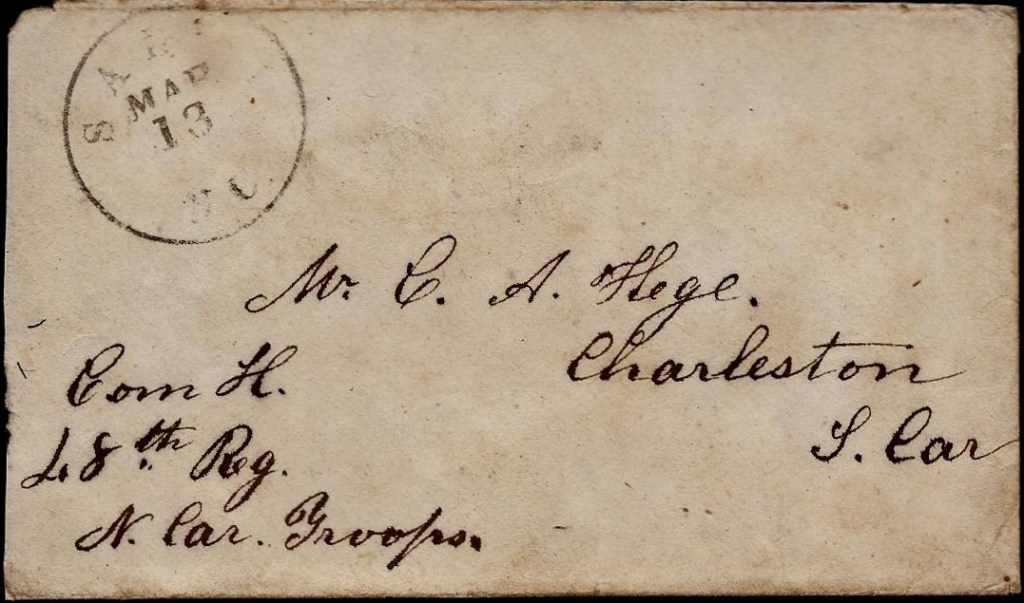 MAR
13
N C.
Mr. C. A. Hege.
Charleston
S. Car
Com H.
48th Reg.
N. Car. Troops.